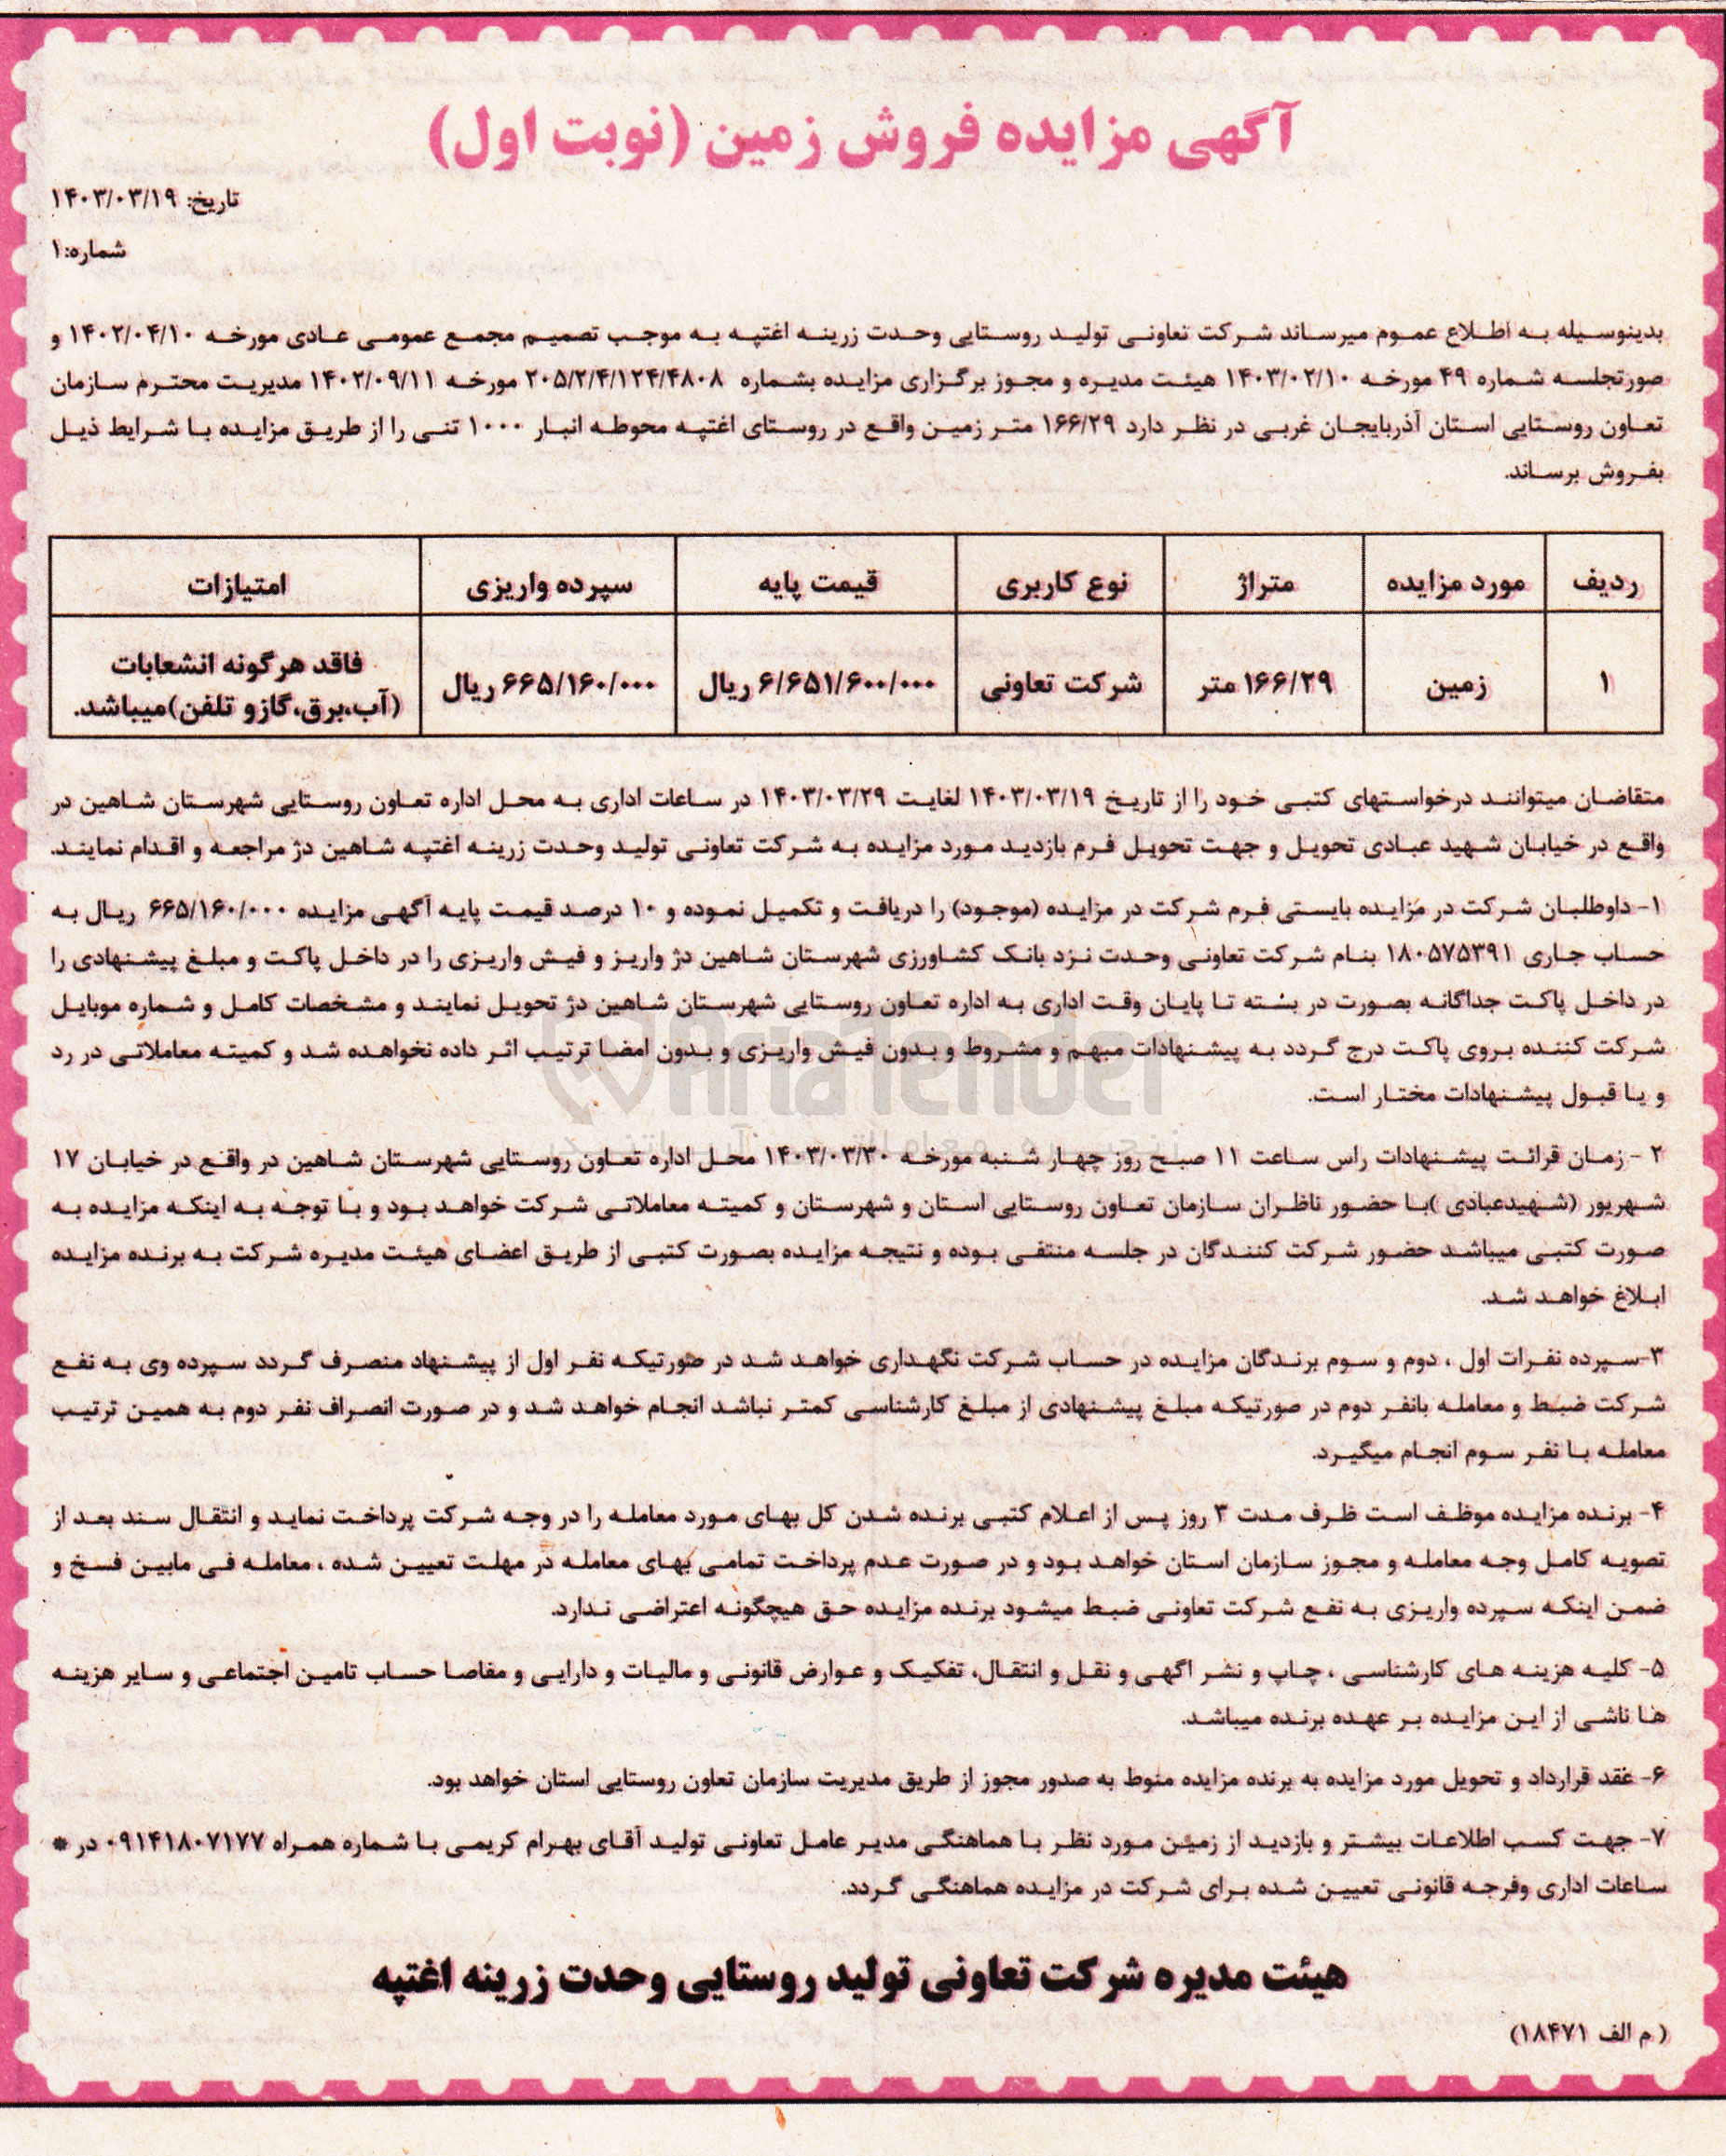 آگهی مزایده فروش زمین (نوبت اول)
تاریخ: ۱۴۰۳/۰۳/۱۹
شماره:۱
بدینوسیله به اطلاع عموم میرساند شرکت تعاونی تولید روستایی وحدت زرینه اغتپه به موجب تصمیم مجمع عمومی عادی مورخه ۱۴۰۲/۰۴/۱۰ و
صورتجلسه شماره ۴۹ مورخه ۱۴۰۳/۰۲/۱۰ هیئت مدیره و مجوز برگزاری مزایده بشماره ۲۰۵/۲/۴/۱۲۴/۴۸۰۸ مورخه ۱۴۰۲/۰۹/۱۱ مدیریت محترم سازمان
تعاون روستایی استان آذربایجان غربی در نظر دارد ۱۶۶/۲۹ متر زمین واقع در روستای اغتپه محوطه انبار ۱۰۰۰ تنی را از طریق مزایده با شرایط ذیل
بفروش برساند.
ردیف مورد مزایده متراژ نوع کاربری قیمت پایه سپرده واریزی امتیازات
۱ زمین ۱۶۶/۲۹ متر شرکت تعاونی ۶/۶۵۱/۶۰۰/۰۰۰ ریال ۶۶۵/۱۶۰/۰۰۰ ریال فاقد هرگونه انشعابات
(آب،برق،گازو تلفن)میباشد.
متقاضان میتوانند درخواستهای کتبی خود را از تاریخ ۱۴۰۳/۰۳/۱۹ لغایت ۱۴۰۳/۰۳/۲۹ در ساعات اداری به محل اداره تعاون روستایی شهرستان شاهین در
واقع در خیابان شهید عبادی تحویل و جهت تحویل فرم بازدید مورد مزایده به شرکت تعاونی تولید وحدت زرینه اغتپه شاهین دژ مراجعه و اقدام نمایند.
۱- داوطلبان شرکت در مزایده بایستی فرم شرکت در مزایده (موجود) را دریافت و تکمیل نموده و ۱۰ درصد قیمت پایه آگهی مزایده ۶۶۵/۱۶۰/۰۰۰ ریال به
حساب جاری ۱۸۰۵۷۵۳۹۱ بنام شرکت تعاونی وحدت نزد بانک کشاورزی شهرستان شاهین دژ واریز و فیش واریزی را در داخل پاکت و مبلغ پیشنهادی را
در داخل پاکت جداگانه بصورت در بسته تا پایان وقت اداری به اداره تعاون روستایی شهرستان شاهین دژ تحویل نمایند و مشخصات کامل و شماره موبایل
شرکت کننده بروی پاکت درج گردد به پیشنهادات مبهم و مشروط و بدون فیش واریزی و بدون امضا ترتیب اثر داده نخواهده شد و کمیته معاملاتی در رد
و یا قبول پیشنهادات مختار است.
AriaTender
۲ - زمان قرائت پیشنهادات راس ساعت ۱۱ صبح روز چهار شنبه مورخه ۱۴۰۳/۰۳/۳۰ محل اداره تعاون روستایی شهرستان شاهین در واقع در خیابان ۱۷
شهریور (شهیدعبادی )با حضور ناظران سازمان تعاون روستایی استان و شهرستان و کمیته معاملاتی شرکت خواهد بود و با توجه به اینکه مزایده به
صورت کتبی میباشد حضور شرکت کنندگان در جلسه منتفی بوده و نتیجه مزایده بصورت کتبی از طریق اعضای هیئت مدیره شرکت به برنده مزایده
ابلاغ خواهد شد.
۳-سپرده نفرات اول ، دوم و سوم برندگان مزایده در حساب شرکت نگهداری خواهد شد در صورتیکه نفر اول از پیشنهاد منصرف گردد سپرده وی به نفع
شرکت ضبط و معامله بانفر دوم در صورتیکه مبلغ پیشنهادی از مبلغ کارشناسی کمتر نباشد انجام خواهد شد و در صورت انصراف نفر دوم به همین ترتیب
معامله با نفر سوم انجام میگیرد.
۴- برنده مزایده موظف است ظرف مدت ۳ روز پس از اعلام کتبی برنده شدن کل بهای مورد معامله را در وجه شرکت پرداخت نماید و انتقال سند بعد از
تصویه کامل وجه معامله و مجوز سازمان استان خواهد بود و در صورت عدم پرداخت تمامی بهای معامله در مهلت تعیین شده ، معامله فی مابین فسخ و
ضمن اینکه سپرده واریزی به نفع شرکت تعاونی ضبط میشود برنده مزایده حق هیچگونه اعتراضی ندارد.
۵- کلیه هزینه های کارشناسی ، چاپ و نشر اگهی و نقل و انتقال، تفکیک و عوارض قانونی و مالیات و دارایی و مفاصا حساب تامین اجتماعی و سایر هزینه
ها ناشی از این مزایده بر عهده برنده میباشد.
۶- عقد قرارداد و تحویل مورد مزایده به برنده مزایده منوط به صدور مجوز از طریق مدیریت سازمان تعاون روستایی استان خواهد بود.
۷- جهت کسب اطلاعات بیشتر و بازدید از زمین مورد نظر با هماهنگی مدیر عامل تعاونی تولید آقای بهرام کریمی با شماره همراه ۰۹۱۴۱۸۰۷۱۷۷ در *
ساعات اداری وفرجه قانونی تعیین شده برای شرکت در مزایده هماهنگی گردد.
هیئت مدیره شرکت تعاونی تولید روستایی وحدت زرینه اغتپه
( م الف ۱۸۴۷۱)